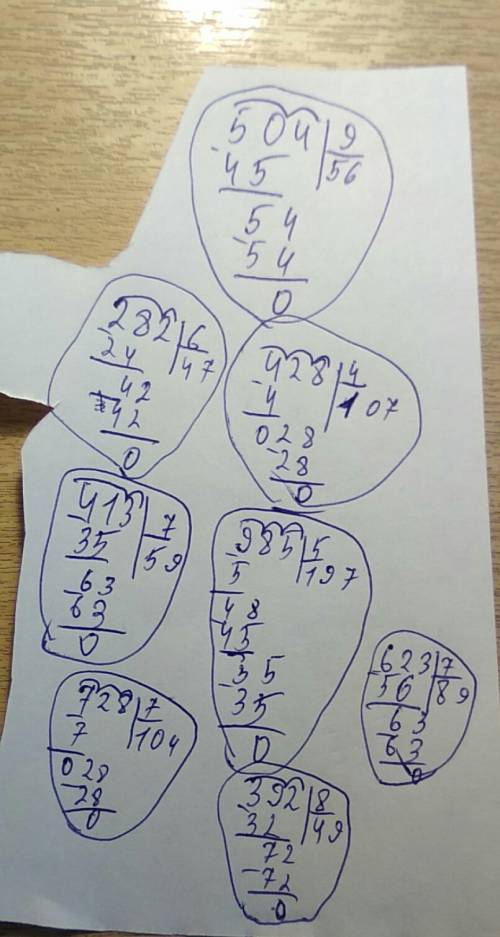 504 9
45 56
54
54
0
282 6
24 47
42
42
0
428 4
4 107
028
28
0
413 7
35 59
63
63
0
985 5
5 197
48
45
35
35
0
623 7
56 89
63
63
0
728 7
7 104
028
28
0
392 8
32 49
72
72
0